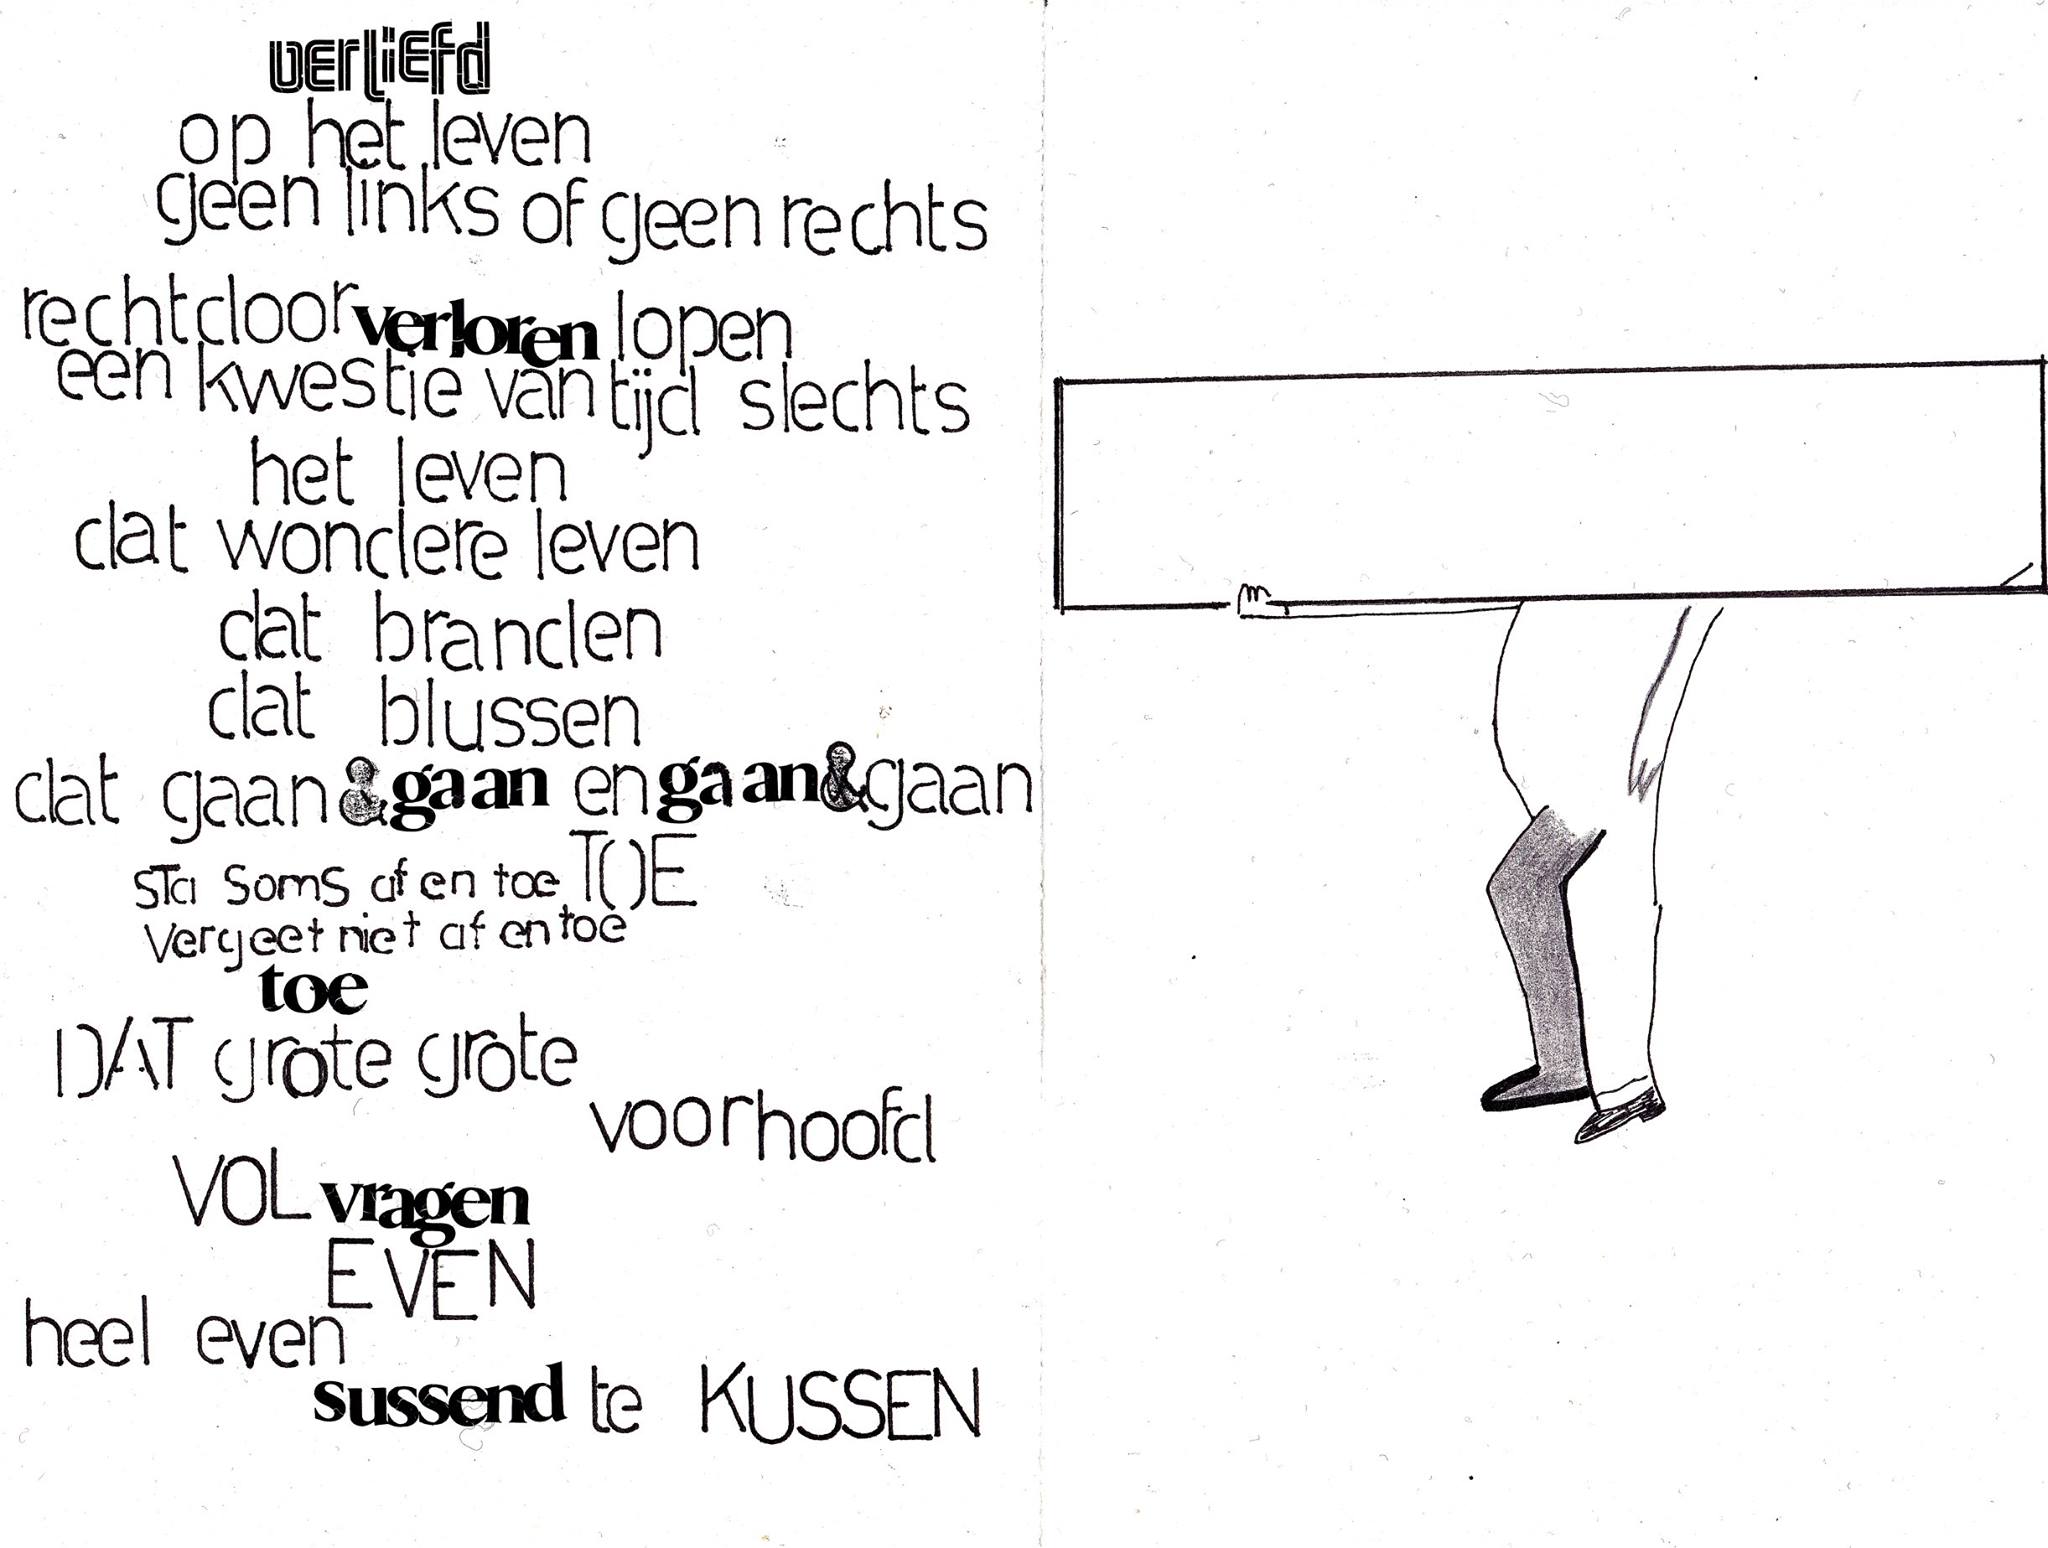 verliefd
op het leven
geen links of geen rechts
rechtdoor verloren lopen
een kwestie van tijd slechts
het leven
dat wondere leven
dat branden
dat blussen
dat gaan & gaan en gaan & gaan
sta soms af en toe TOE
vergeet niet af en toe
toe
DAT grote grote
voorhoofd
VOL vragen
EVEN
heel even
sussend te KUSSEN